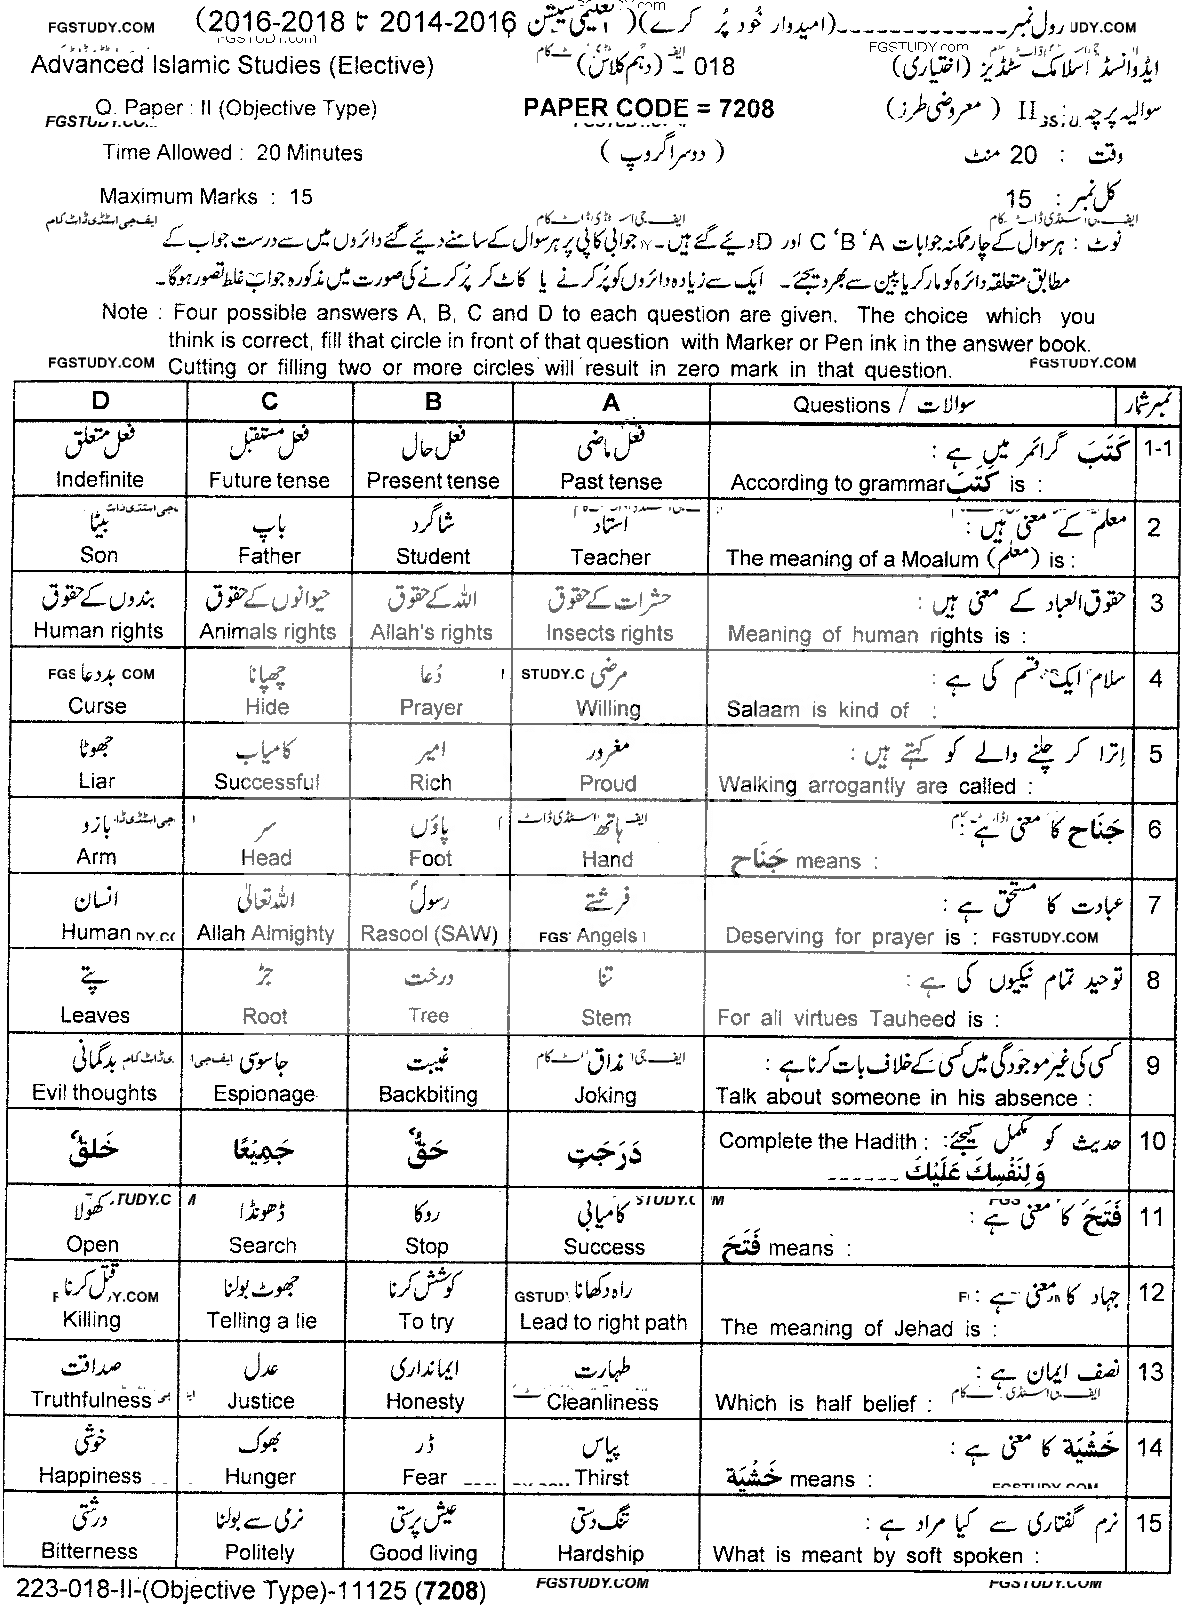 رول نمبر ------------- (امیدوار خود پُر کرے) (تعلیمی سیشن 2014-2016 تا 2016-2018) FGSTUDY.COM
ایڈوانسڈ اسلامک سٹڈیز (اختیاری) 018 - (دہم کلاس) Advanced Islamic Studies (Elective)
سوالیہ پرچہ II (معروضی طرز) PAPER CODE = 7208 Q. Paper : II (Objective Type)
FGSTUDY.COM
وقت : 20 منٹ (دوسرا گروپ) Time Allowed : 20 Minutes
کل نمبر : 15 Maximum Marks : 15
ایف جی اسٹڈی ڈاٹ کام
نوٹ : ہر سوال کے چار ممکنہ جوابات A ‘B ‘C اور D دیئے گئے ہیں۔ جوابی کاپی پر ہر سوال کے سامنے دیئے گئے دائروں میں سے درست جواب کے
مطابق متعلقہ دائرہ کو مارکر یا پین سے بھر دیجئے۔ ایک سے زیادہ دائروں کو پُر کرنے یا کاٹ کر پُر کرنے کی صورت میں مذکورہ جواب غلط تصور ہوگا۔
Note : Four possible answers A, B, C and D to each question are given. The choice which you
think is correct, fill that circle in front of that question with Marker or Pen ink in the answer book.
FGSTUDY.COM Cutting or filling two or more circles will result in zero mark in that question. FGSTUDY.COM
نمبر شمار Questions / سوالات A B C D
1-1 کَتَبَ گرائمر میں ہے : فعل ماضی فعل حال فعل مستقبل فعل متعلق
According to grammar کَتَبَ is : Past tense Present tense Future tense Indefinite
2 معلم کے معنی ہیں : استاد شاگرد باپ بیٹا
The meaning of a Moalum (معلم) is : Teacher Student Father Son
3 حقوق العباد کے معنی ہیں : حشرات کے حقوق اللہ کے حقوق حیوانوں کے حقوق بندوں کے حقوق
Meaning of human rights is : Insects rights Allah's rights Animals rights Human rights
4 سلام ایک قسم کی ہے : مرضی دُعا چھپانا بددعا
Salaam is kind of : Willing Prayer Hide Curse
5 اِترا کر چلنے والے کو کہتے ہیں : مغرور امیر کامیاب جھوٹا
Walking arrogantly are called : Proud Rich Successful Liar
6 جَنَاح کا معنی ہے : ہاتھ پاؤں سر بازو
جَنَاح means : Hand Foot Head Arm
7 عبادت کا مستحق ہے : فرشتے رسولؐ اللہ تعالیٰ انسان
Deserving for prayer is : FGSTUDY.COM Angels Rasool (SAW) Allah Almighty Human
8 توحید تمام نیکیوں کی ہے : تنا درخت جڑ پتے
For all virtues Tauheed is : Stem Tree Root Leaves
9 کسی کی غیر موجودگی میں کسی کے خلاف بات کرنا ہے : مذاق غیبت جاسوسی بدگمانی
Talk about someone in his absence : Joking Backbiting Espionage Evil thoughts
10 حدیث کو مکمل کیجئے: Complete the Hadith : دَرَجٰتٍ حَقٌّ جَمِيْعًا خَلقٌ
وَلِنَفْسِكَ عَلَيْكَ ------
11 فَتَحَ کا معنی ہے : کامیابی روکا ڈھونڈا کھولا
فَتَحَ means : Success Stop Search Open
12 جہاد کا معنی ہے : راہ دکھانا کوشش کرنا جھوٹ بولنا قتل کرنا
The meaning of Jehad is : Lead to right path To try Telling a lie Killing
13 نصف ایمان ہے : طہارت ایمانداری عدل صداقت
Which is half belief : Cleanliness Honesty Justice Truthfulness
14 خَشْيَة کا معنی ہے : پیاس ڈر بھوک خوشی
خَشْيَة means : Thirst Fear Hunger Happiness
15 نرم گفتاری سے کیا مراد ہے : تنگ دستی عیش پرستی نرمی سے بولنا درشتی
What is meant by soft spoken : Hardship Good living Politely Bitterness
223-018-II-(Objective Type)-11125 (7208) FGSTUDY.COM